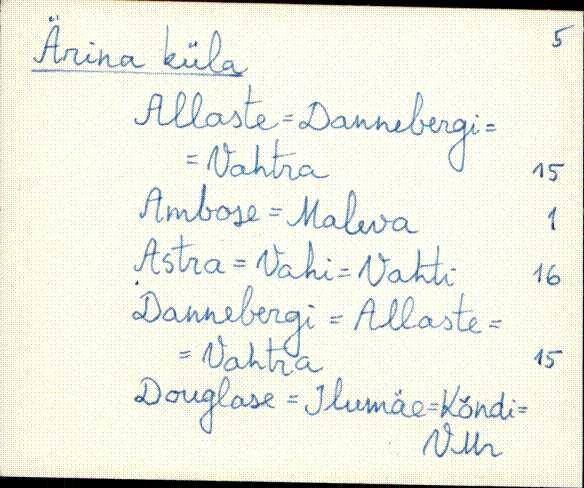 5
Ärina küla
Allaste = Dannebergi =
= Vahtra 15
Ambose = Maleva 1
Astra = Vahi = Vahti 16
Dannebergi = Allaste =
= Vahtra 15
Douglase = Ilumäe = Kõndi =
VMr